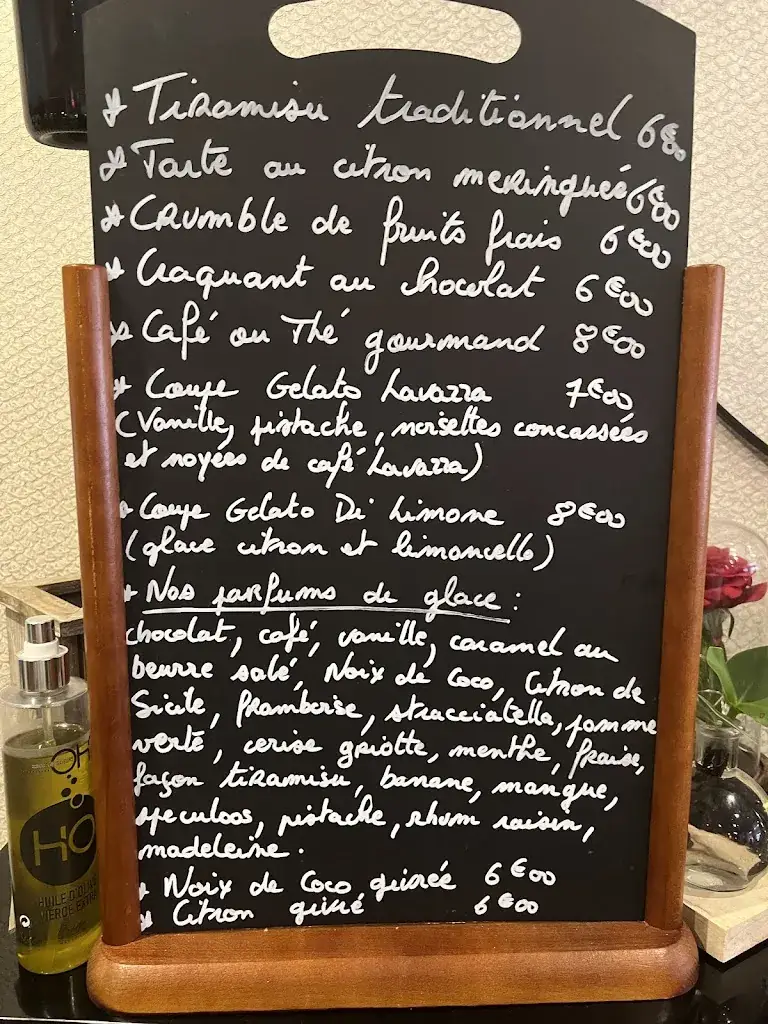 * Tiramisu traditionnel 6€00
* Tarte au citron meringuée 6€00
* Crumble de fruits frais 6€00
* Craquant au chocolat 6€00
* Café ou Thé gourmand 8€00
* Coupe Gelato Lavazza 7€00
(Vanille, pistache, noisettes concassées
et noyées de café Lavazza)
* Coupe Gelato Di Limone 8€00
(glace citron et limoncello)
* Nos parfums de glace :
chocolat, café, vanille, caramel au
beurre salé, Noix de Coco, Citron de
Sicile, framboise, stracciatella, pomme
verte, cerise griotte, menthe, fraise,
façon tiramisu, banane, mangue,
speculoos, pistache, rhum raisin,
madeleine.
* Noix de Coco givrée 6€00
* Citron givré 6€00
OH
HO
HUILE D'OLIVE
VIERGE EXTRA